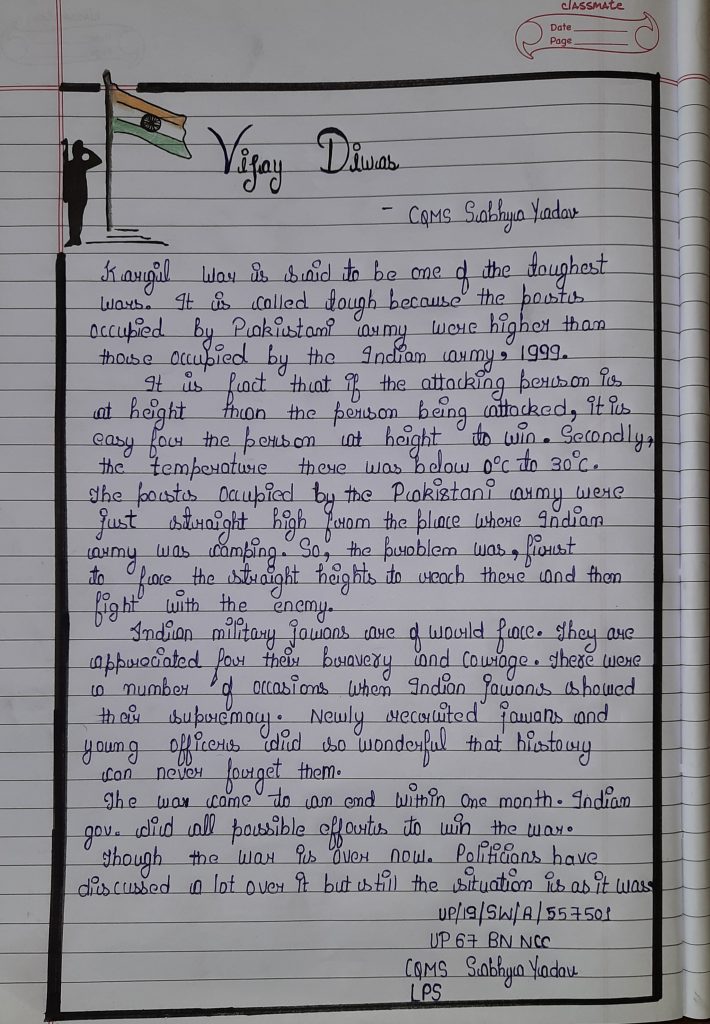 classmate
Date
Page
Vijay Diwas
- CQMS Sabhya Yadav
Kargil war is said to be one of the toughest
wars. It is called tough because the posts
occupied by Pakistani army were higher than
those occupied by the Indian army, 1999.
It is fact that if the attacking person is
at height than the person being attacked, it is
easy for the person at height to win. Secondly,
the temperature there was below 0°c to 30°c.
The posts occupied by the Pakistani army were
just straight high from the place where Indian
army was camping. So, the problem was, first
to face the straight heights to reach there and then
fight with the enemy.
Indian military jawans are of world face. They are
appreciated for their bravery and courage. There were
a number of occasions when Indian jawans showed
their supremacy. Newly recruited jawans and
young officers did so wonderful that history
can never forget them.
The war came to an end within one month. Indian
gov. did all possible efforts to win the war.
Though the war is over now. Politicians have
discussed a lot over it but still the situation is as it was
UP/19/SW/A/557501
UP 67 BN NCC
CQMS Sabhya Yadav
LPS